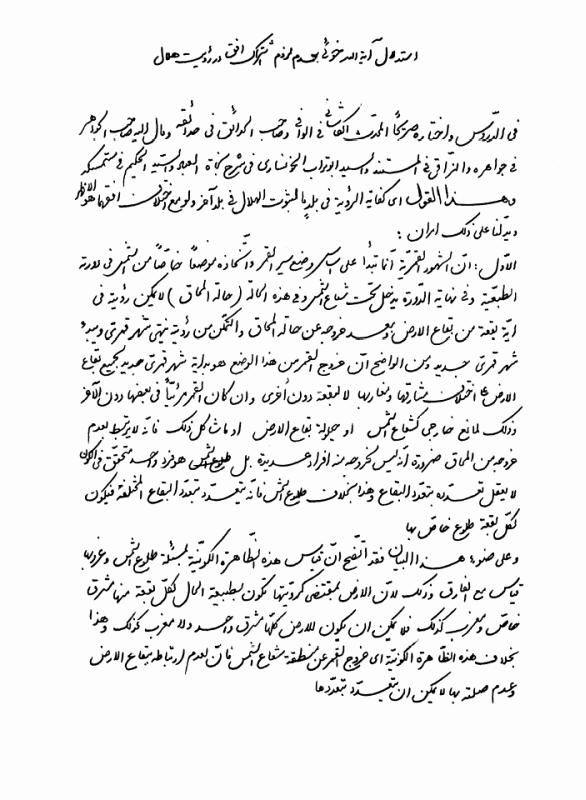 استدلال آیة الله خوئی بعدم لزوم اشتراک افق در رؤیت هلال
فی الدروس واختاره صریحًا المحدث الکاشانی فی الوافی وصاحب الحدائق فی حدائقه ومال الیه صاحب الجواهر
فی جواهره والنراقی فی المستند والسید ابوتراب الخونساری فی شرح نجاة العباد والسید الحکیم فی مستمسکه
وهذا القول ای کفایة الرؤیة فی بلدٍ ما لثبوت الهلال فی بلد آخر ولو مع اختلاف افقهما هو الاظهر
ویدلنا علی ذلک امران :
الاوّل : انّ الشهور القمریّة انّما تبدأ علی اساس وضع سیر القمر واتّخاذه موضعًا خاصًا من الشمس فی دورته
الطبیعیة وفی نهایة الدّورة یدخل تحت شعاع الشمس وفی هذه الحالة ( حالة المحاق ) لا یمکن رؤیته فی
ایّة بقعة من بقاع الارض وبعد خروجه عن حالة المحاق والتمکّن من رؤیته ینتهی شهر قمری ویبدء
شهر قمری جدید ومن الواضح انّ خروج القمر من هذا الوضع هو بدایة شهر قمری جدید لجمیع بقاع
الارض علی اختلاف مشارقها ومغاربها لا لبقعة دون أخری وان کان القمر مرئیًا فی بعضها دون الآخر
وذلک لمانع خارجی کشعاع الشمس او حیلولة بقاع الارض او ما شاکل ذلک فانّه لا یرتبط بعدم
خروجه من المحاق ضرورة انّه لیس لخروجه منه افراد عدیدة بل هو فرد واحد متحقّق فی الکون
لا یعقل تعدّده بتعدّد البقاع وهذا بخلاف طلوع الشمس فانّه یتعدّد بتعدّد البقاع المختلفة فیکون
لکلّ بقعة طلوع خاصّ بها
وعلی ضوء هذا البیان فقد اتّضح انّ قیاس هذه الظّاهرة الکونیّة بمسئلة طلوع الشمس وغروبها
قیاس مع الفارق وذلک لانّ الارض بمقتضی کرویّتها تکون بطبیعة الحال لکلّ بقعة منها مشرق
خاصّ ومغرب کذلک فلا یمکن ان یکون للارض کلّها مشرق واحد ولا مغرب کذلک وهذا
بخلاف هذه الظّاهرة الکونیّة ای خروج القمر عن منطقة شعاع الشمس فانّه لعدم ارتباطه ببقاع الارض
وعدم صلته بها لا یمکن ان یتعدّد بتعدّدها